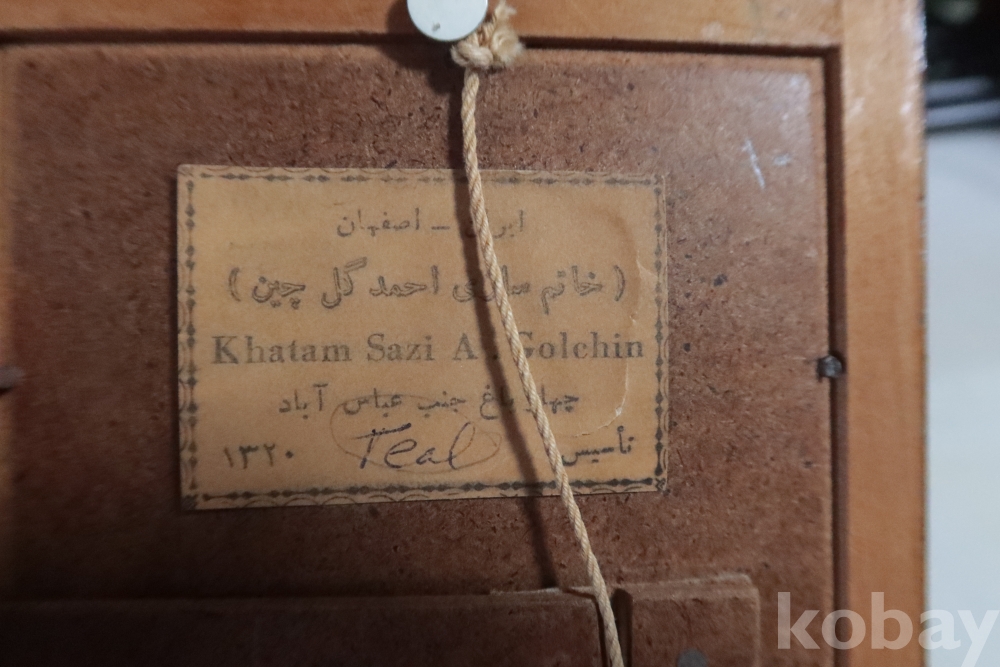 ایران - اصفهان
( خاتم سازی احمد گل چین )
Khatam Sazi A. Golchin
چهار باغ جنب عباس آباد
تأسیس ۱۳۲۰
Teal
kobay